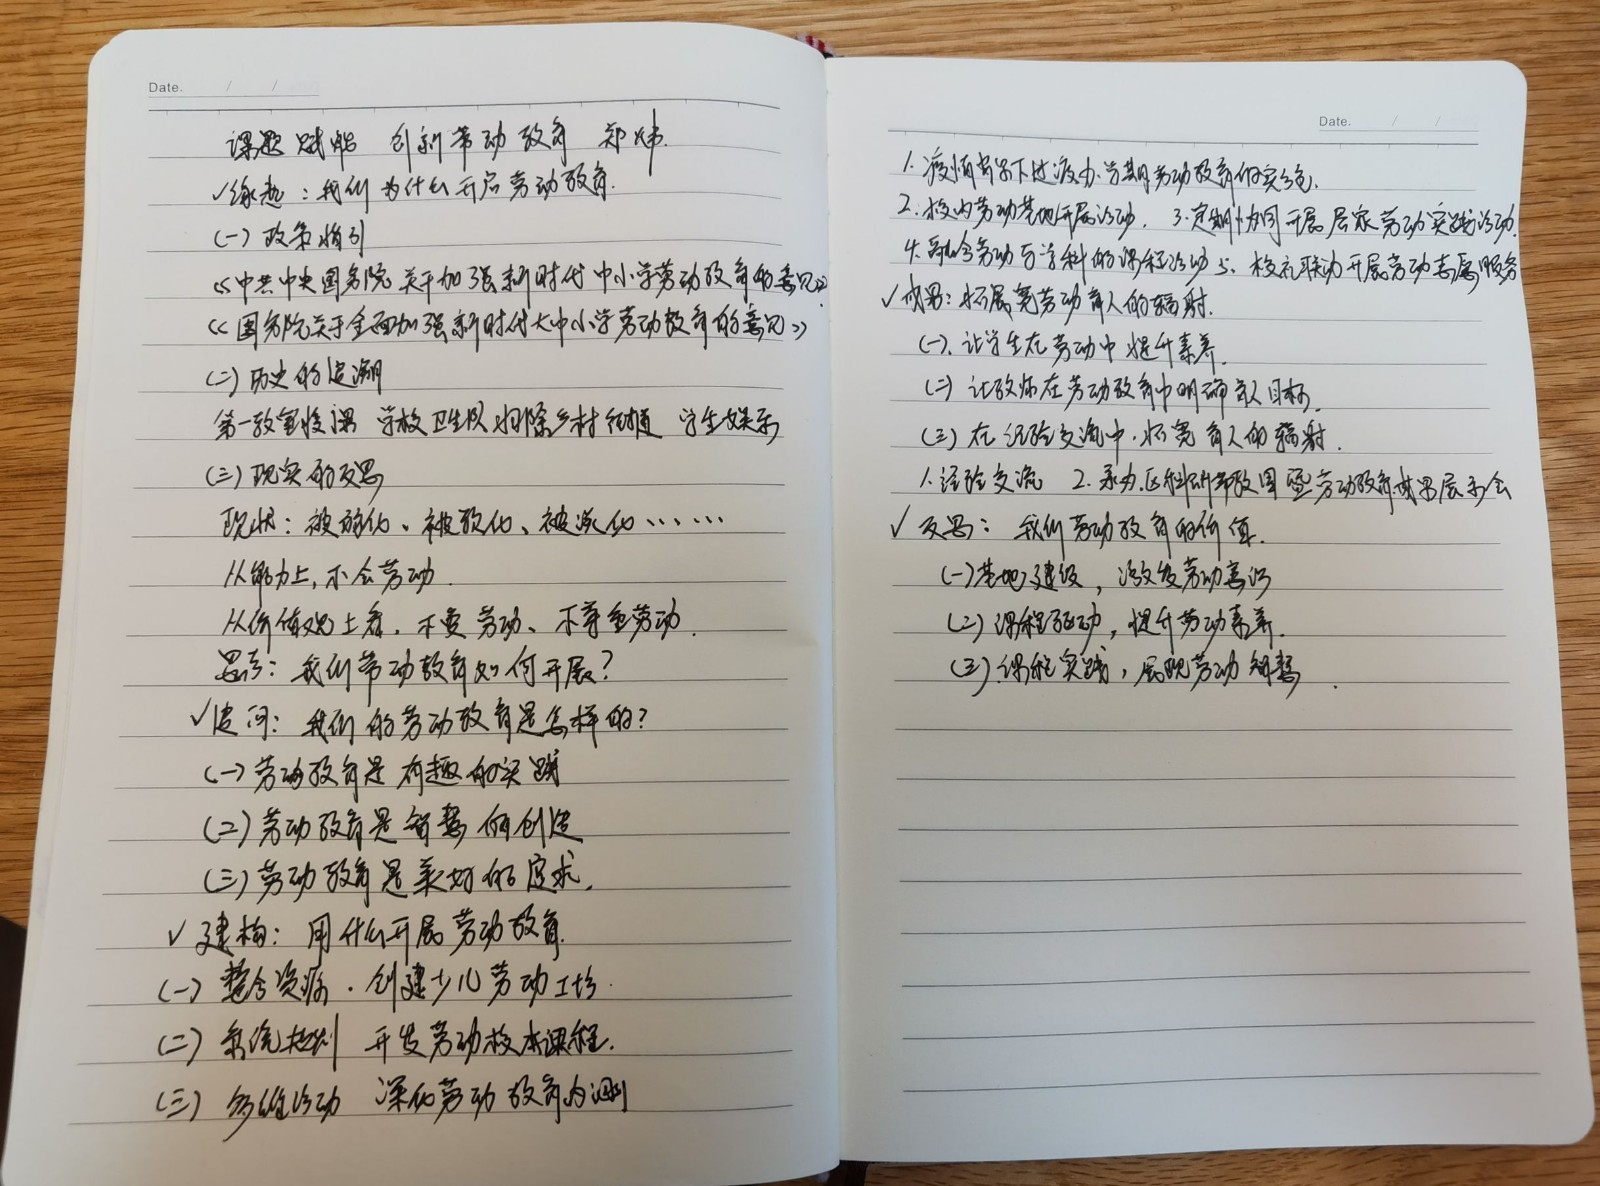 Date. / /
课题赋能 创新劳动教育 郑炜
✓缘起：我们为什么开启劳动教育.
(一) 政策指引
《中共中央国务院关于加强新时代中小学劳动教育的意见》
《国务院关于全面加强新时代大中小学劳动教育的意见》
(二) 历史的追溯
第一教室授课 学校卫生队扫除乡村街道 学生娱乐
(三) 现实的反思
现状：被弱化、被软化、被淡化……
从能力上，不会劳动.
从价值观上看，不爱劳动、不尊重劳动.
思考：我们劳动教育如何开展？
✓追问：我们的劳动教育是怎样的？
(一) 劳动教育是有趣的实践
(二) 劳动教育是智慧的创造
(三) 劳动教育是美好的追求.
✓建构：用什么开展劳动教育.
(一) 整合资源.创建少儿劳动工坊.
(二) 系统规划 开发劳动校本课程.
(三) 多维活动 深化劳动教育内涵
Date. / /
1. 疫情背景下过渡办学期劳动教育的
2. 校内劳动基地开展活动. 3. 定期协同开展居家劳动实践活动.
4. 融合劳动与学科的课程活动 5. 校社联动开展劳动志愿服务
✓成果：拓展宽劳动育人的辐射.
(一). 让学生在劳动中提升素养.
(二) 让教师在劳动教育中明确育人目标.
(三) 在经验交流中.拓宽育人的辐射.
1. 经验交流 2. 承办区科研 暨劳动教育成果展示会
✓反思：我们劳动教育的价值.
(一) 基地建设，激发劳动意识
(二) 课程驱动，提升劳动素养.
(三) 课程实践，展现劳动智慧.